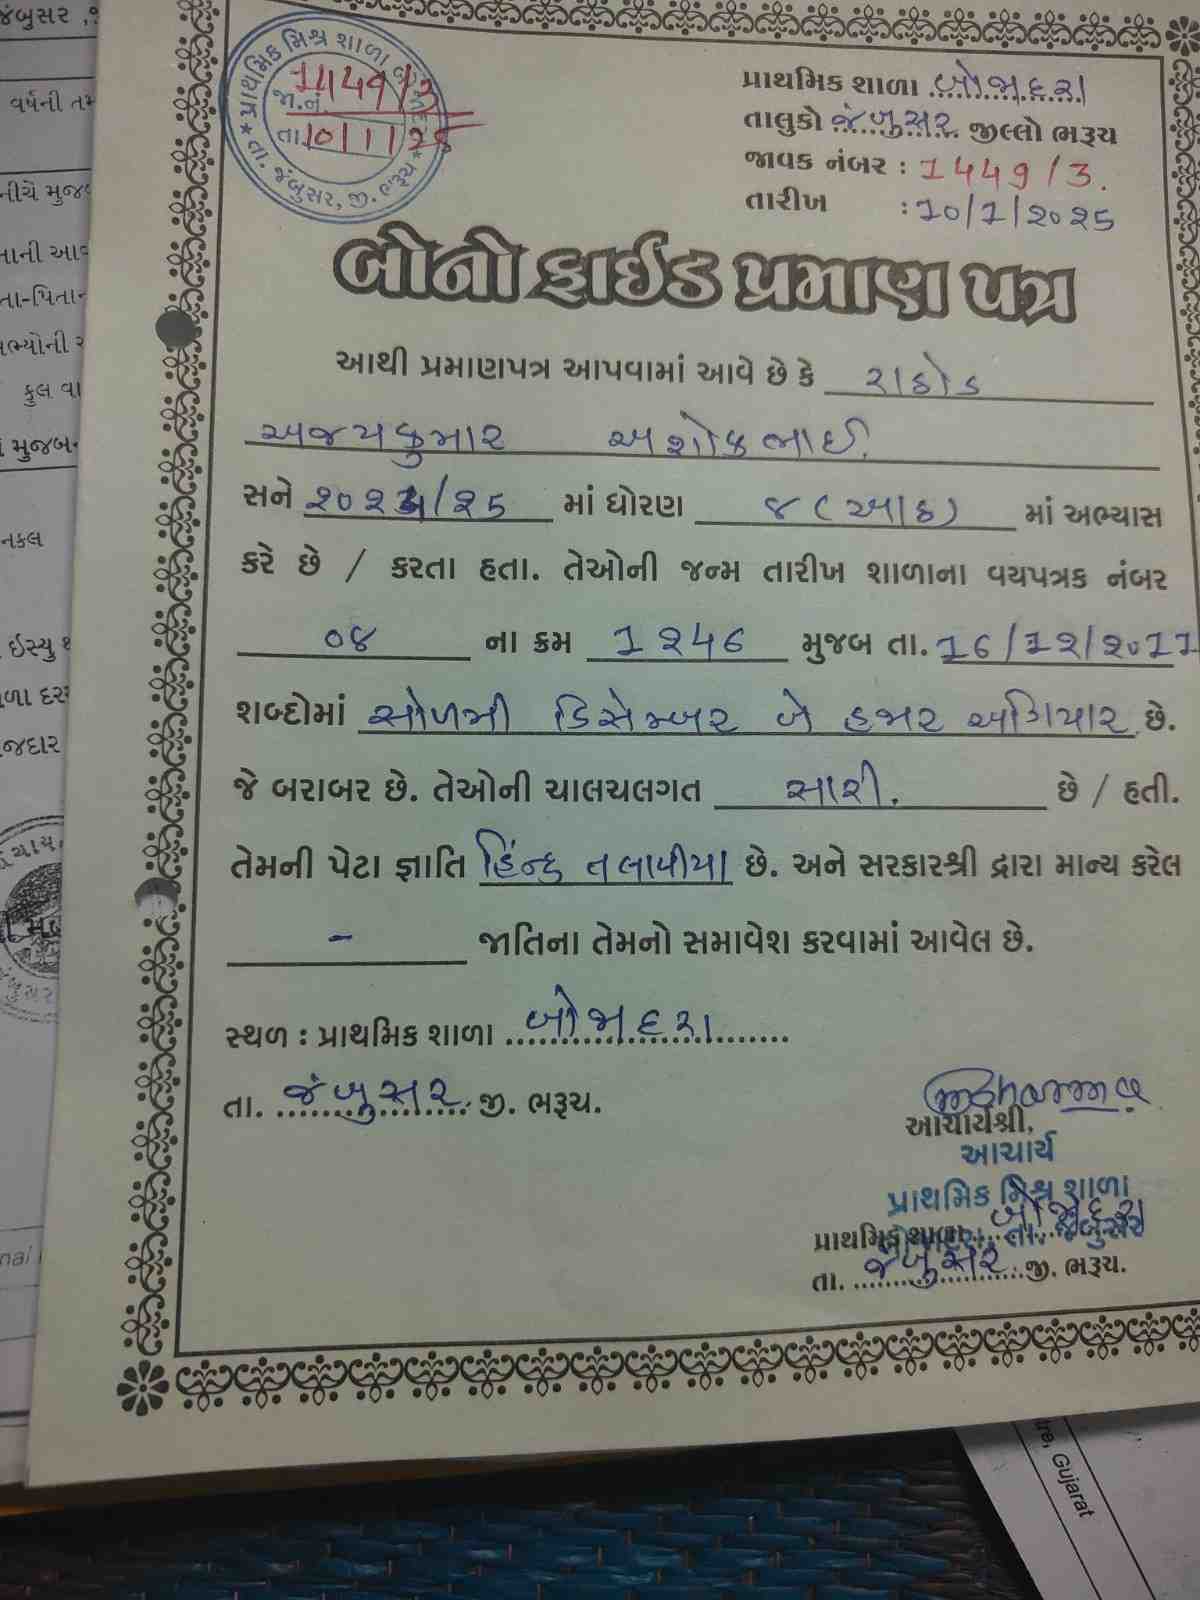 જંબુસર
વર્ષની તમ
નીચે મુજબ
કુલ વા
મુજબન
નકલ
ઇસ્યુ થ
પ્રાથમિક મિશ્ર શાળા
જા.નં. 1449/3
તા. 10/1/25
તા. જંબુસર, જી. ભરૂચ
પ્રાથમિક શાળા બોજાદરા
તાલુકો જંબુસર જીલ્લો ભરૂચ
જાવક નંબર : 1449/3.
તારીખ : 10/1/૨૦૨૫
બોનો ફાઈડ પ્રમાણ પત્ર
આથી પ્રમાણપત્ર આપવામાં આવે છે કે રાઠોડ
અજયકુમાર અશોકભાઈ.
સને ૨૦૨૪/૨૫ માં ધોરણ ૮ (આઠ) માં અભ્યાસ
કરે છે / કરતા હતા. તેઓની જન્મ તારીખ શાળાના વયપત્રક નંબર
૦૪ ના ક્રમ 1૨૪6 મુજબ તા. 16/1૨/૨૦11
શબ્દોમાં સોળમી ડિસેમ્બર બે હજાર અગિયાર છે.
જે બરાબર છે. તેઓની ચાલચલગત સારી. છે / હતી.
તેમની પેટા જ્ઞાતિ હિન્દુ તલાવીયા છે. અને સરકારશ્રી દ્રારા માન્ય કરેલ
- જાતિના તેમનો સમાવેશ કરવામાં આવેલ છે.
સ્થળ : પ્રાથમિક શાળા બોજાદરા
તા. જંબુસર જી. ભરૂચ.
આચાર્યશ્રી,
આચાર્ય
પ્રાથમિક મિશ્ર શાળા
પ્રાથમિક શાળા બોજાદરા
તા. જંબુસર
તા. જંબુસર જી. ભરૂચ.
Gujarat